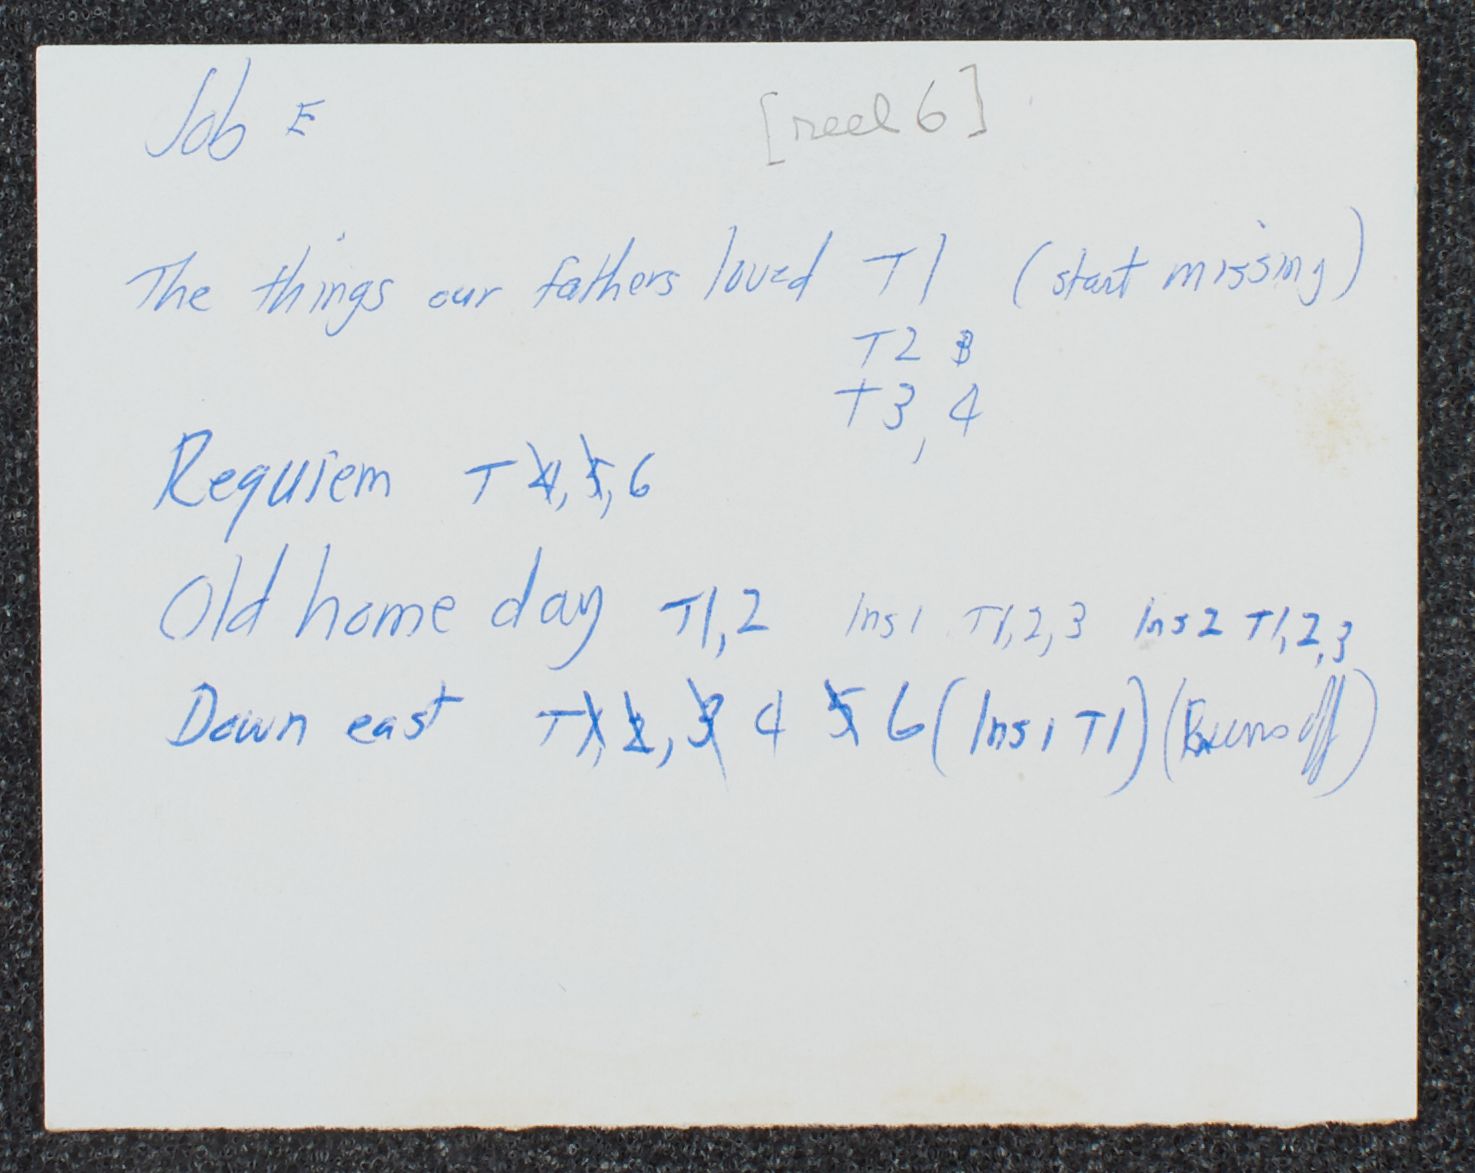 Job E [reel 6]
The things our fathers loved T1 (start missing)
T2
T3, 4
Requiem T 4, 5, 6
Old home day T1, 2 Ins 1 T1, 2, 3 Ins 2 T1, 2, 3
Down east T1, 2, 3 4 5 6 (Ins 1 T1) (Runs off)